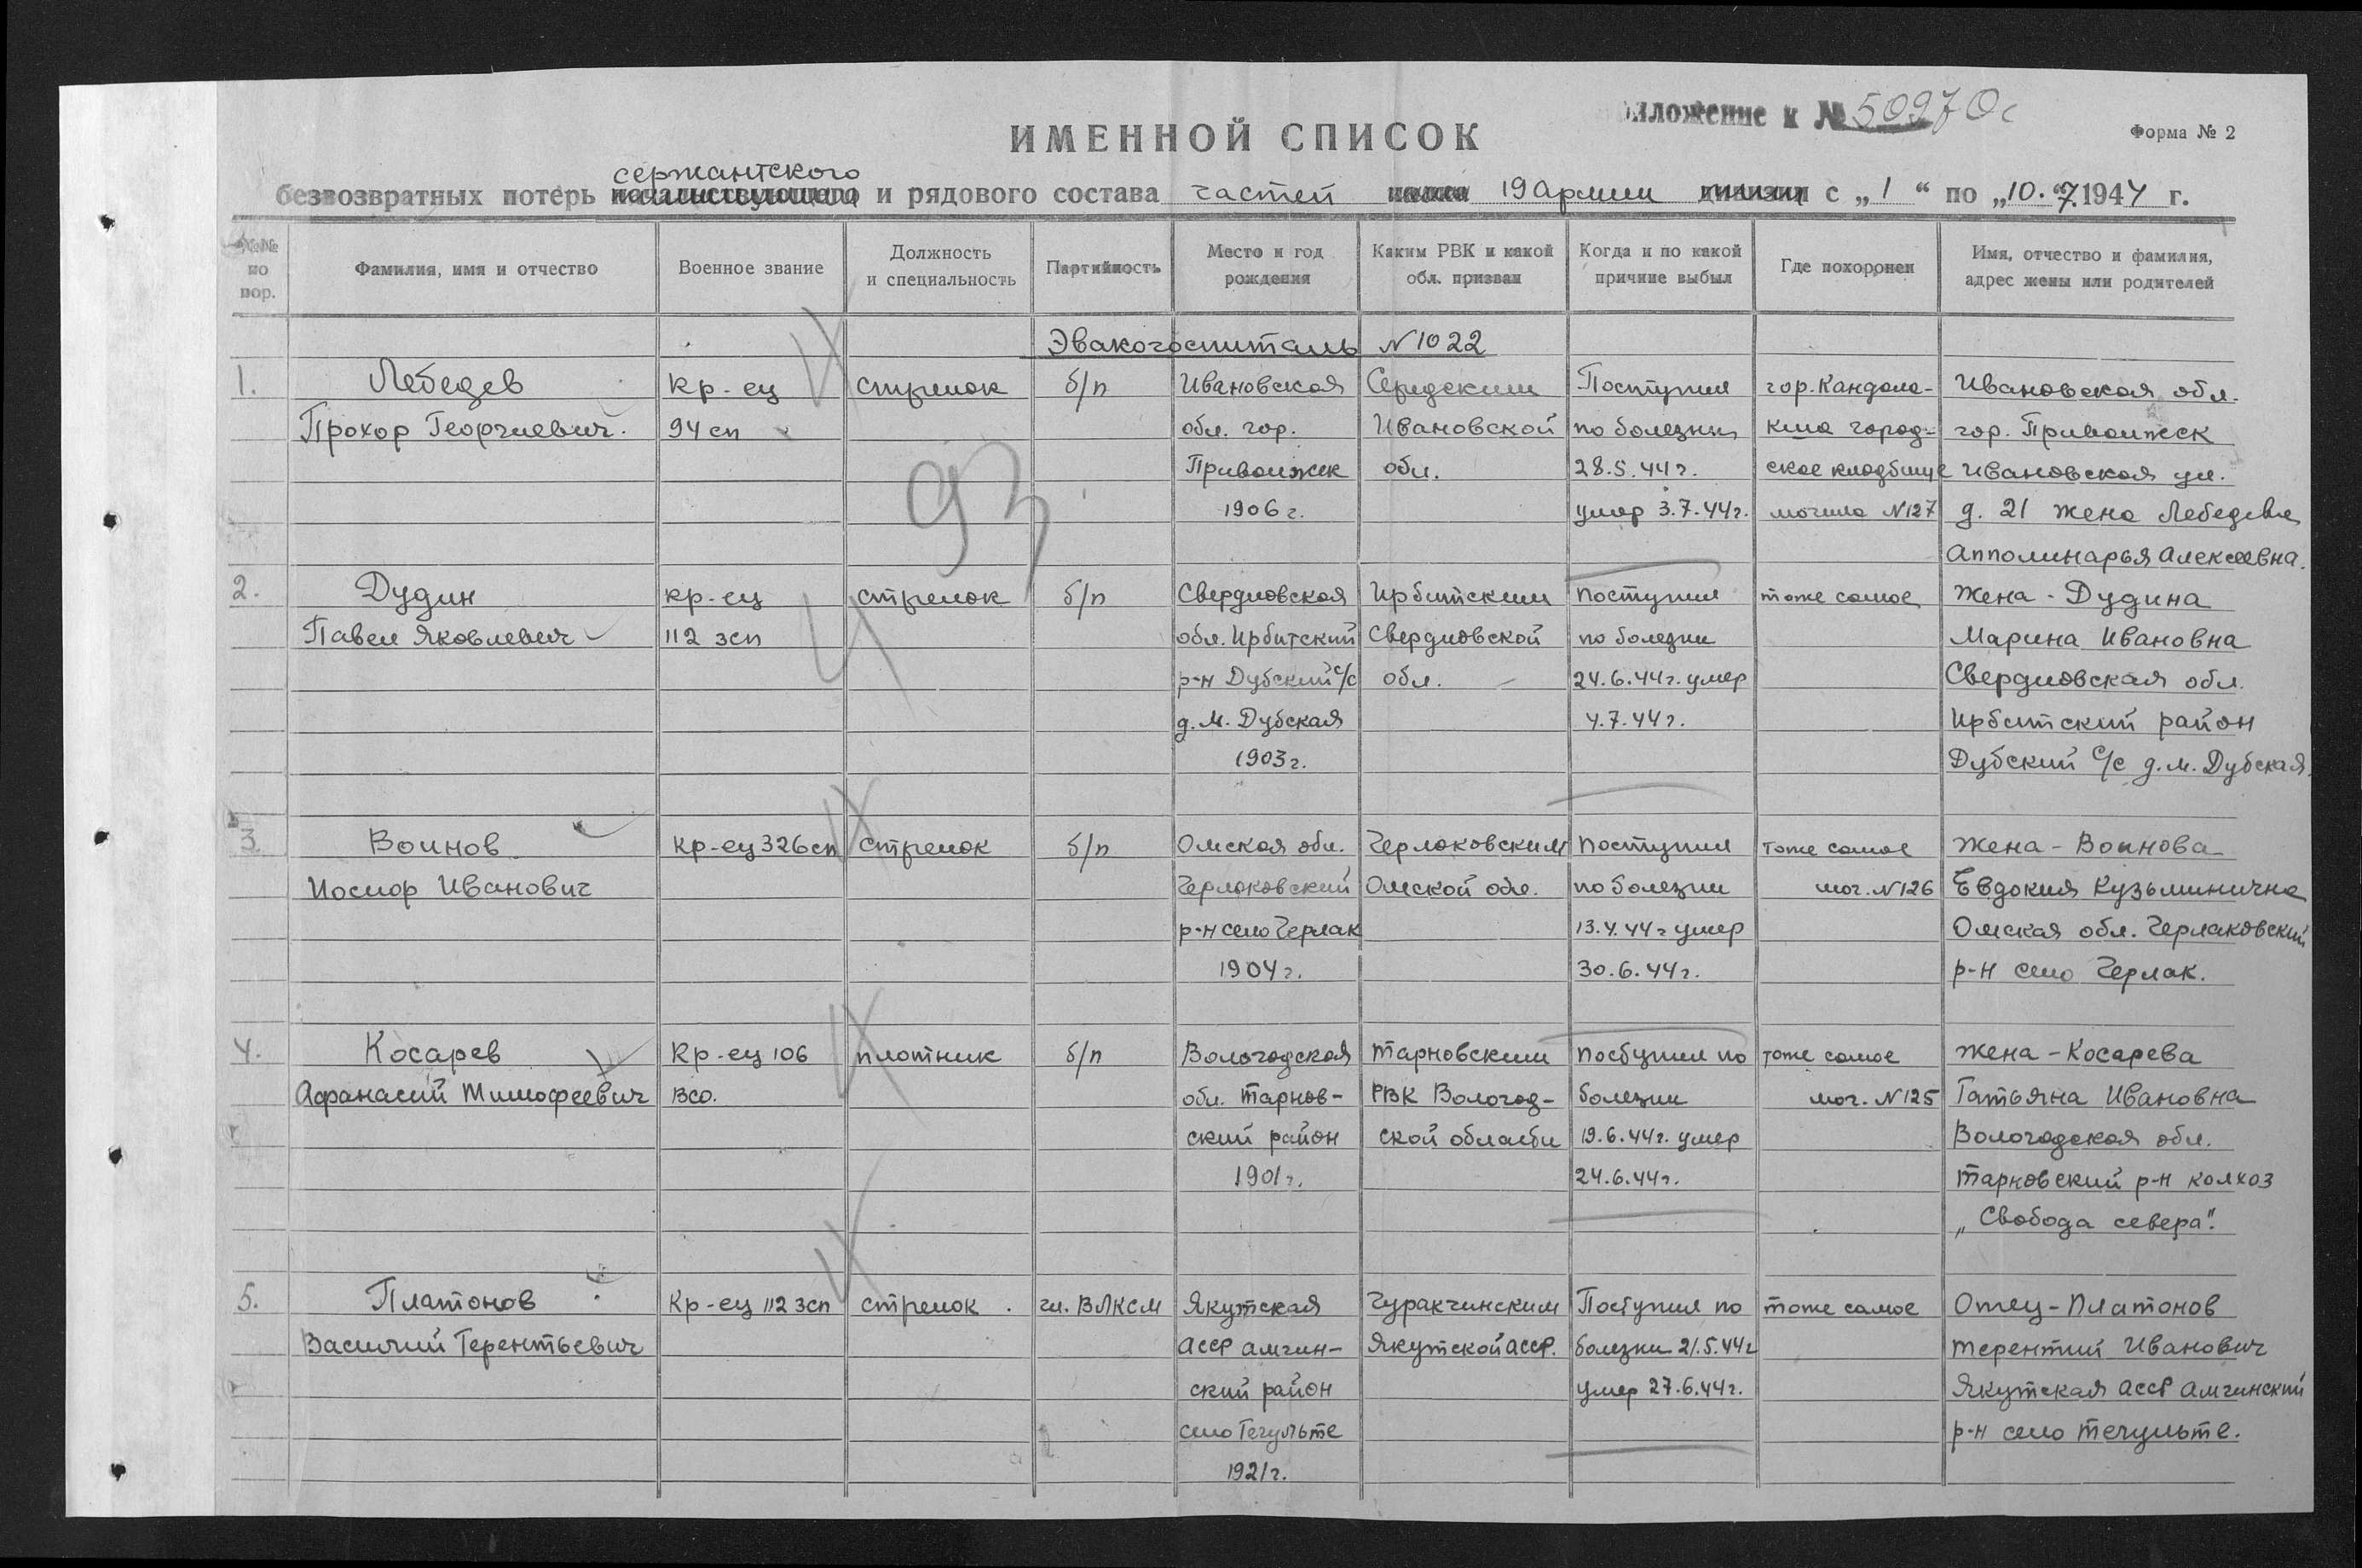 иложение к № 50970с
ИМЕННОЙ СПИСОК
Форма № 2
сержантского
безвозвратных потерь начальствующего и рядового состава частей полка 19 Армии дивизии с „1“ по „10.“7.1944 г.
№№ по пор.
Фамилия, имя и отчество
Военное звание
Должность и специальность
Партийность
Место и год рождения
Каким РВК и какой обл. призван
Когда и по какой причине выбыл
Где похоронен
Имя, отчество и фамилия, адрес жены или родителей
Эвакогоспиталь N 1022
93
1. Лебедев кр-ец стрелок б/п Ивановская Середским Поступил гор. Кандала- Ивановская обл.
Прохор Георгиевич. 94 сп обл. гор. Ивановской по болезни кша город- гор. Приволжск
Приволжск обл. 28.5.44г. ское кладбище Ивановская ул.
1906г. умер 3.7.44г. могила N127 д. 21 жена Лебедева
Апполинарья Алексеевна.
2. Дудин кр-ец стрелок б/п Свердловская Ирбитским поступил тоже самое Жена - Дудина
Павел Яковлевич 112 зсп обл. Ирбитский Свердловской по болезни Марина Ивановна
р-н Дубский с/с обл. 24.6.44г. умер Свердловская обл.
д. М. Дубская 4.7.44г. Ирбитский район
1903г. Дубский с/с д. М. Дубская.
3 Воинов кр-ец 326 сп стрелок б/п Омская обл. Черлаковским поступил тоже самое Жена - Воинова
Иосиф Иванович Черлаковский Омской обл. по болезни мог. N126 Евдокия Кузьминична
р-н село Черлак 13.4.44г умер Омская обл. Черлаковский
1904г. 30.6.44г. р-н село Черлак.
4. Косарев Кр-ец 106 плотник б/п Вологодская Тарновским поступил по тоже самое Жена - Косарева
Афанасий Тимофеевич всо. обл. Тарнов- РВК Вологод- болезни мог. N125 Татьяна Ивановна
ский район ской области 19.6.44г. умер Вологодская обл.
1901г. 24.6.44г. Тарновский р-н колхоз
„Свобода севера“.
5. Платонов Кр-ец 112 зсп стрелок чл. ВЛКСМ Якутская Чуракчинским Поступил по тоже самое Отец - Платонов
Василий Терентьевич АССР Амгин- Якутской АССР. болезни 21.5.44г Терентий Иванович
ский район умер 27.6.44г. Якутская АССР Амгинский
село Тегульте р-н село Тегульте.
1921г.